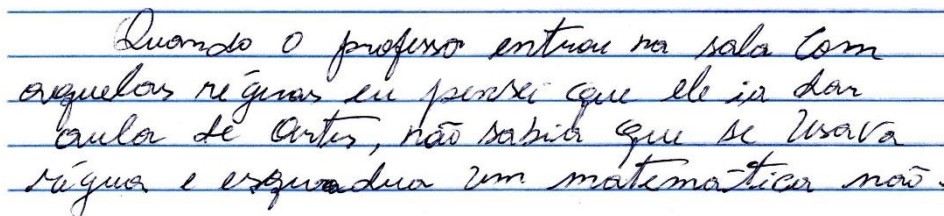 Quando o professo entrou na sala com
aquelas réguas eu pensei que ele ia dar
aula de Artes, não sabia que se usava
régua e esquadra um matemática não.